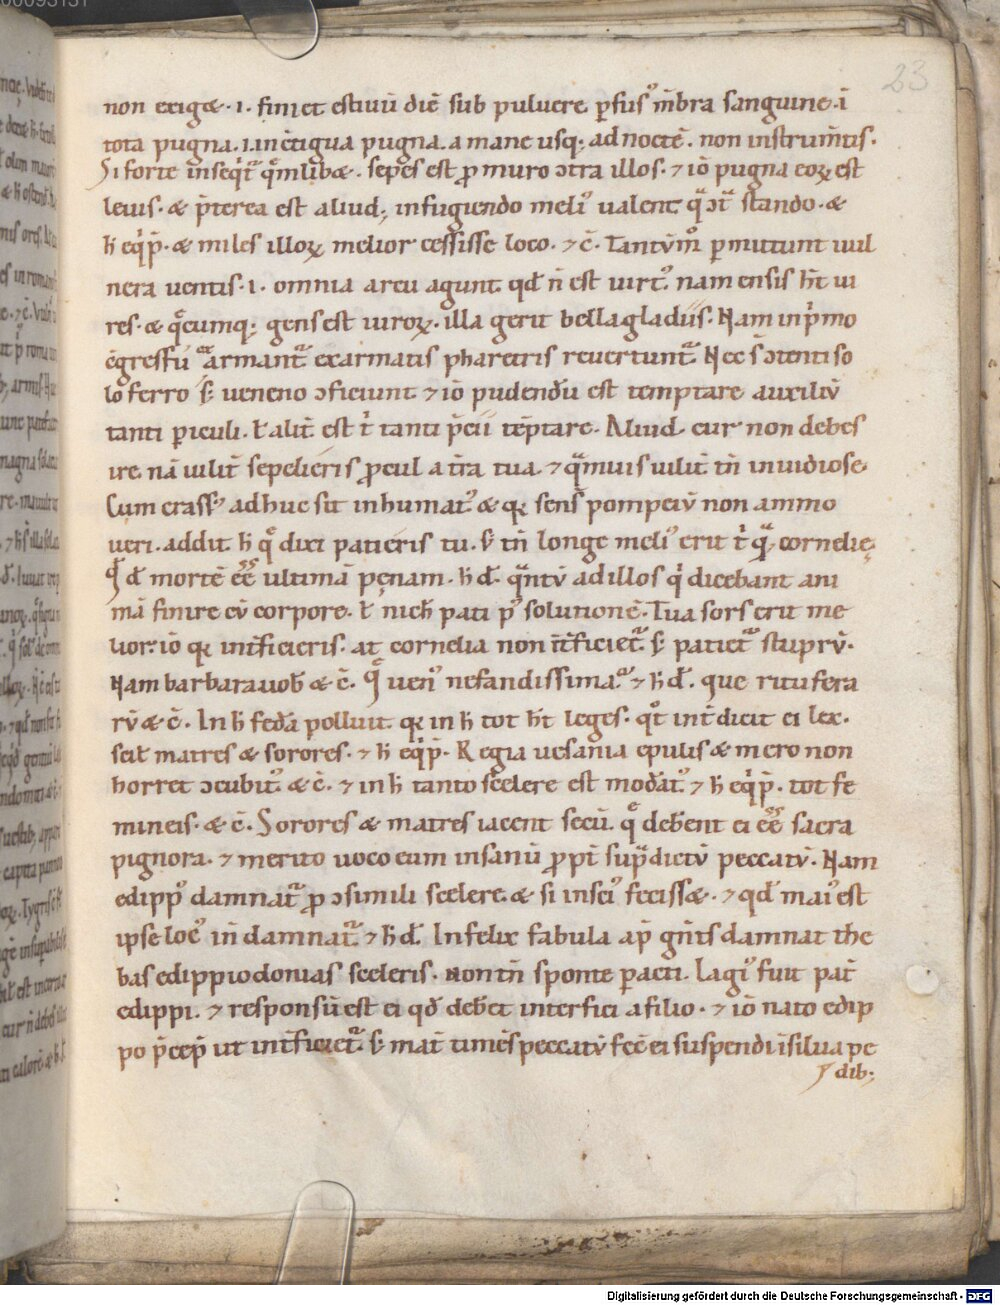 23
non exigæ · i · finiet estiuū diē sub puluere ꝑfusꝰ m̄bra sanguine · i
tota pugna .i. in ētigua pugna . a mane usq; ad noctē . non instrum̄tis .
Si forte inseqͥt᷑ qͣmlibæ . sepes est ꝓ muro ↄtra illos . ⁊ iō pugna eoꝝ est
leuis · æ p̄terea est aliud; in fugiendo meliꝰ ualent qͣ ↄt᷑ stando · æ
h̄ eqͥp̄ · æ miles illoꝝ melior cessisse loco · ⁊ c̄ · Tantūmͦ ꝑmittunt uul
nera uentis · i · omnia arcu agunt qd̄ n̄ est uirtꝰ nam ensis h̄t ui
res · æ qͣcumq; gens est uiroꝝ . illa gerit bella gladiis . Nam in pͥmo
ēgressū armant᷑ exarmatis pharetris reuertunt᷑ Nec s̄ ↄtenti so
lo ferro s; ueneno ↄficiunt ⁊ iō pudendū est temptare auxiliū
tanti ꝑiculi . ł alit̄ est t͛ tanti p̄cii tēptare . Aliud cur non debes
ire . nā uilit̄ sepelieris ꝓcul a t̄ra tua . ⁊ qͣmuis uilit̄ tn̄ inuidiose .
Cum crassꝰ adhuc sit inhumatꝰ æ qꝛ sens̄ pompeiū non ammo
ueri . addit h̄ qͣ dixi patieris tu . s; tn̄ longe meliꝰ erit t͛ qͣ cornelie .
qd̄ mortē ēē ultimā penam . h̄ d̄ . qͣntū ad illos qͥ dicebant ani
mā finire cū corpore . ł nich̄ pati pꝰ solutionē . Tua sors erit me
lior . iō qꝛ int̄ficieris . at cornelia non int̄ficiet᷑ s; patiet᷑ stuprū .
Nam barbara uoƀ æ c̄ . qͣ uenꝰ nefandissima ⁊ h̄ d̄ . que ritu fera
rū æ c̄ . In h̄ fedā polluit qꝛ in h̄ tot h̄t leges . qͦt int̄dicit ei lex .
scił matres æ sorores . ⁊ h̄ eqͥp̄ . Regia uesania epulis æ mero non
horret ↄcubitꝰ æ c̄ . ⁊ in h̄ tanto scelere est mod̄atꝰ ⁊ h̄ eqͥp̄ . tot fe
mineis . æ c̄ . Sorores æ matres iacent secū . qͤ debent ei ēē sacra
pignora . ⁊ merito uoco eum insanū ꝓpt̄ sup̄dictū peccatū . Nam
edippꝰ damnat᷑ ꝓ ↄsimili scelere . æ si insciꝰ fecissæ . ⁊ qd̄ maiꝰ est
ipse locꝰ in damnat᷑ ⁊ h̄ d̄ . Infelix fabula ap̄ gn̄ts damnat the
bas edippiodonias sceleris . Non tn̄ sponte ꝑacti . Lagiꝰ fuit pat̄
edippi . ⁊ responsū est ei qd̄ debet interfici a filio . ⁊ iō nato edip
po p̄cep̄ ut int̄ficiet᷑ s; mat̄ tim̄es peccatū fec̄ ei suspendi ī silua pe
dib;
Digitalisierung gefördert durch die Deutsche Forschungsgemeinschaft - DFG